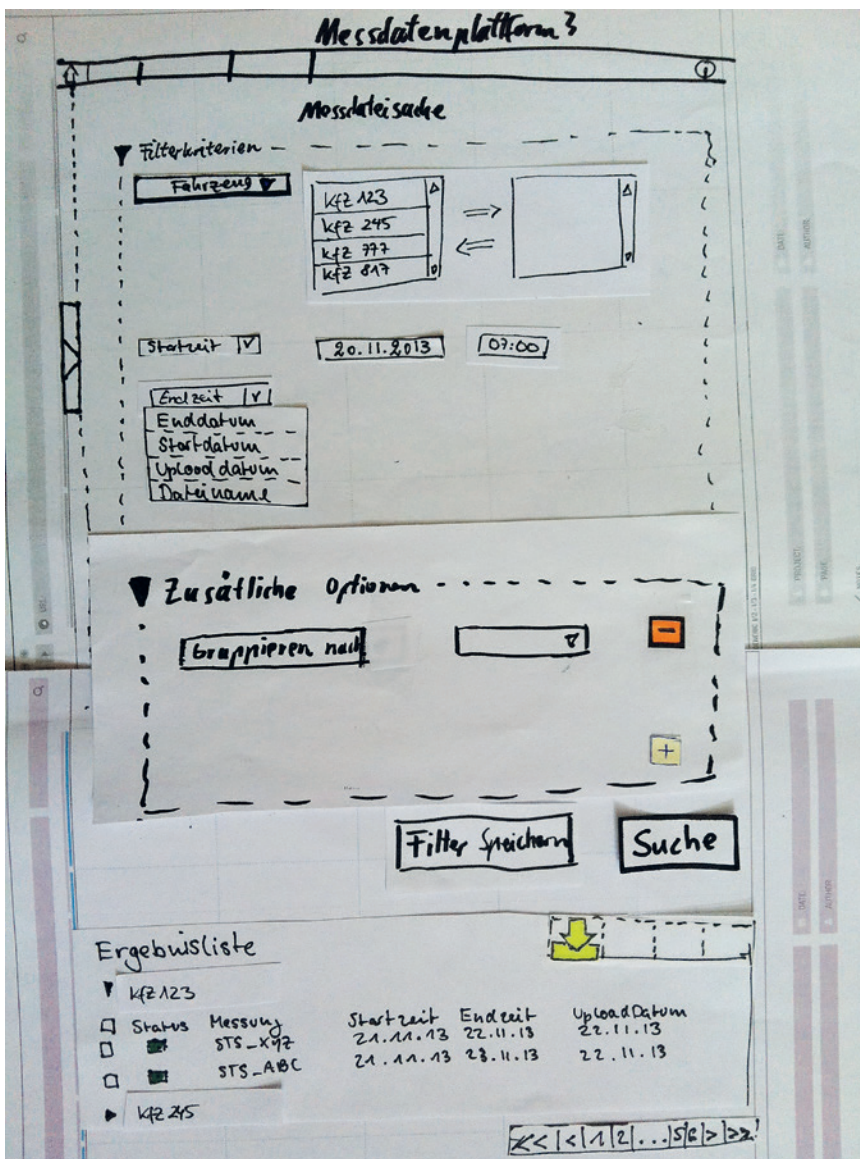 Messdatenplattform 3
i
Messdateisuche
Filterkriterien
Fahrzeug
kfz 123
kfz 245
kfz 777
kfz 817
Startzeit 20.11.2013 07:00
Endzeit
Enddatum
Startdatum
Upload datum
Dateiname
Zusätliche Optionen
Gruppieren nach
-
+
Filter Speichern Suche
Ergebnisliste
kfz 123
Status Messung Startzeit Endzeit Upload Datum
STS_XYZ 21.11.13 22.11.13 22.11.13
STS_ABC 21.11.13 23.11.13 22.11.13
kfz 245
<< | < | 1 | 2 | ... | 5 | 6 | > | >>
URL:
PROJECT:
PAGE:
DATE:
AUTHOR:
DATE:
AUTHOR: